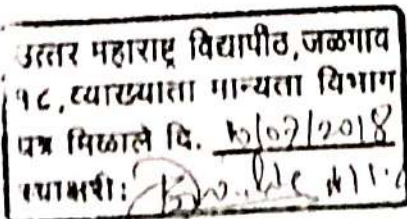 उत्तर महाराष्ट्र विद्यापीठ,जळगाव
१८,व्याख्याता मान्यता विभाग
पत्र मिळाले दि. /07/2018
स्वाक्षरी: